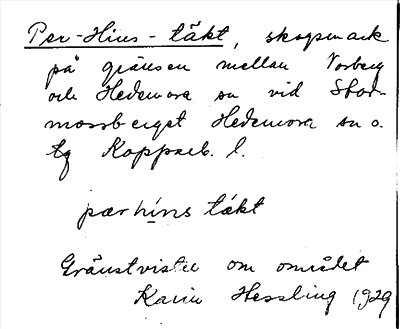 Per-Hins-täkt, skogsmark
på gränsen mellan Norberg
och Hedemora sn vid Stor-
mossberget Hedemora sn o.
tg Kopparb. l.
pærhíns täkt
Gränstvister om området
Karin Hessling 1929